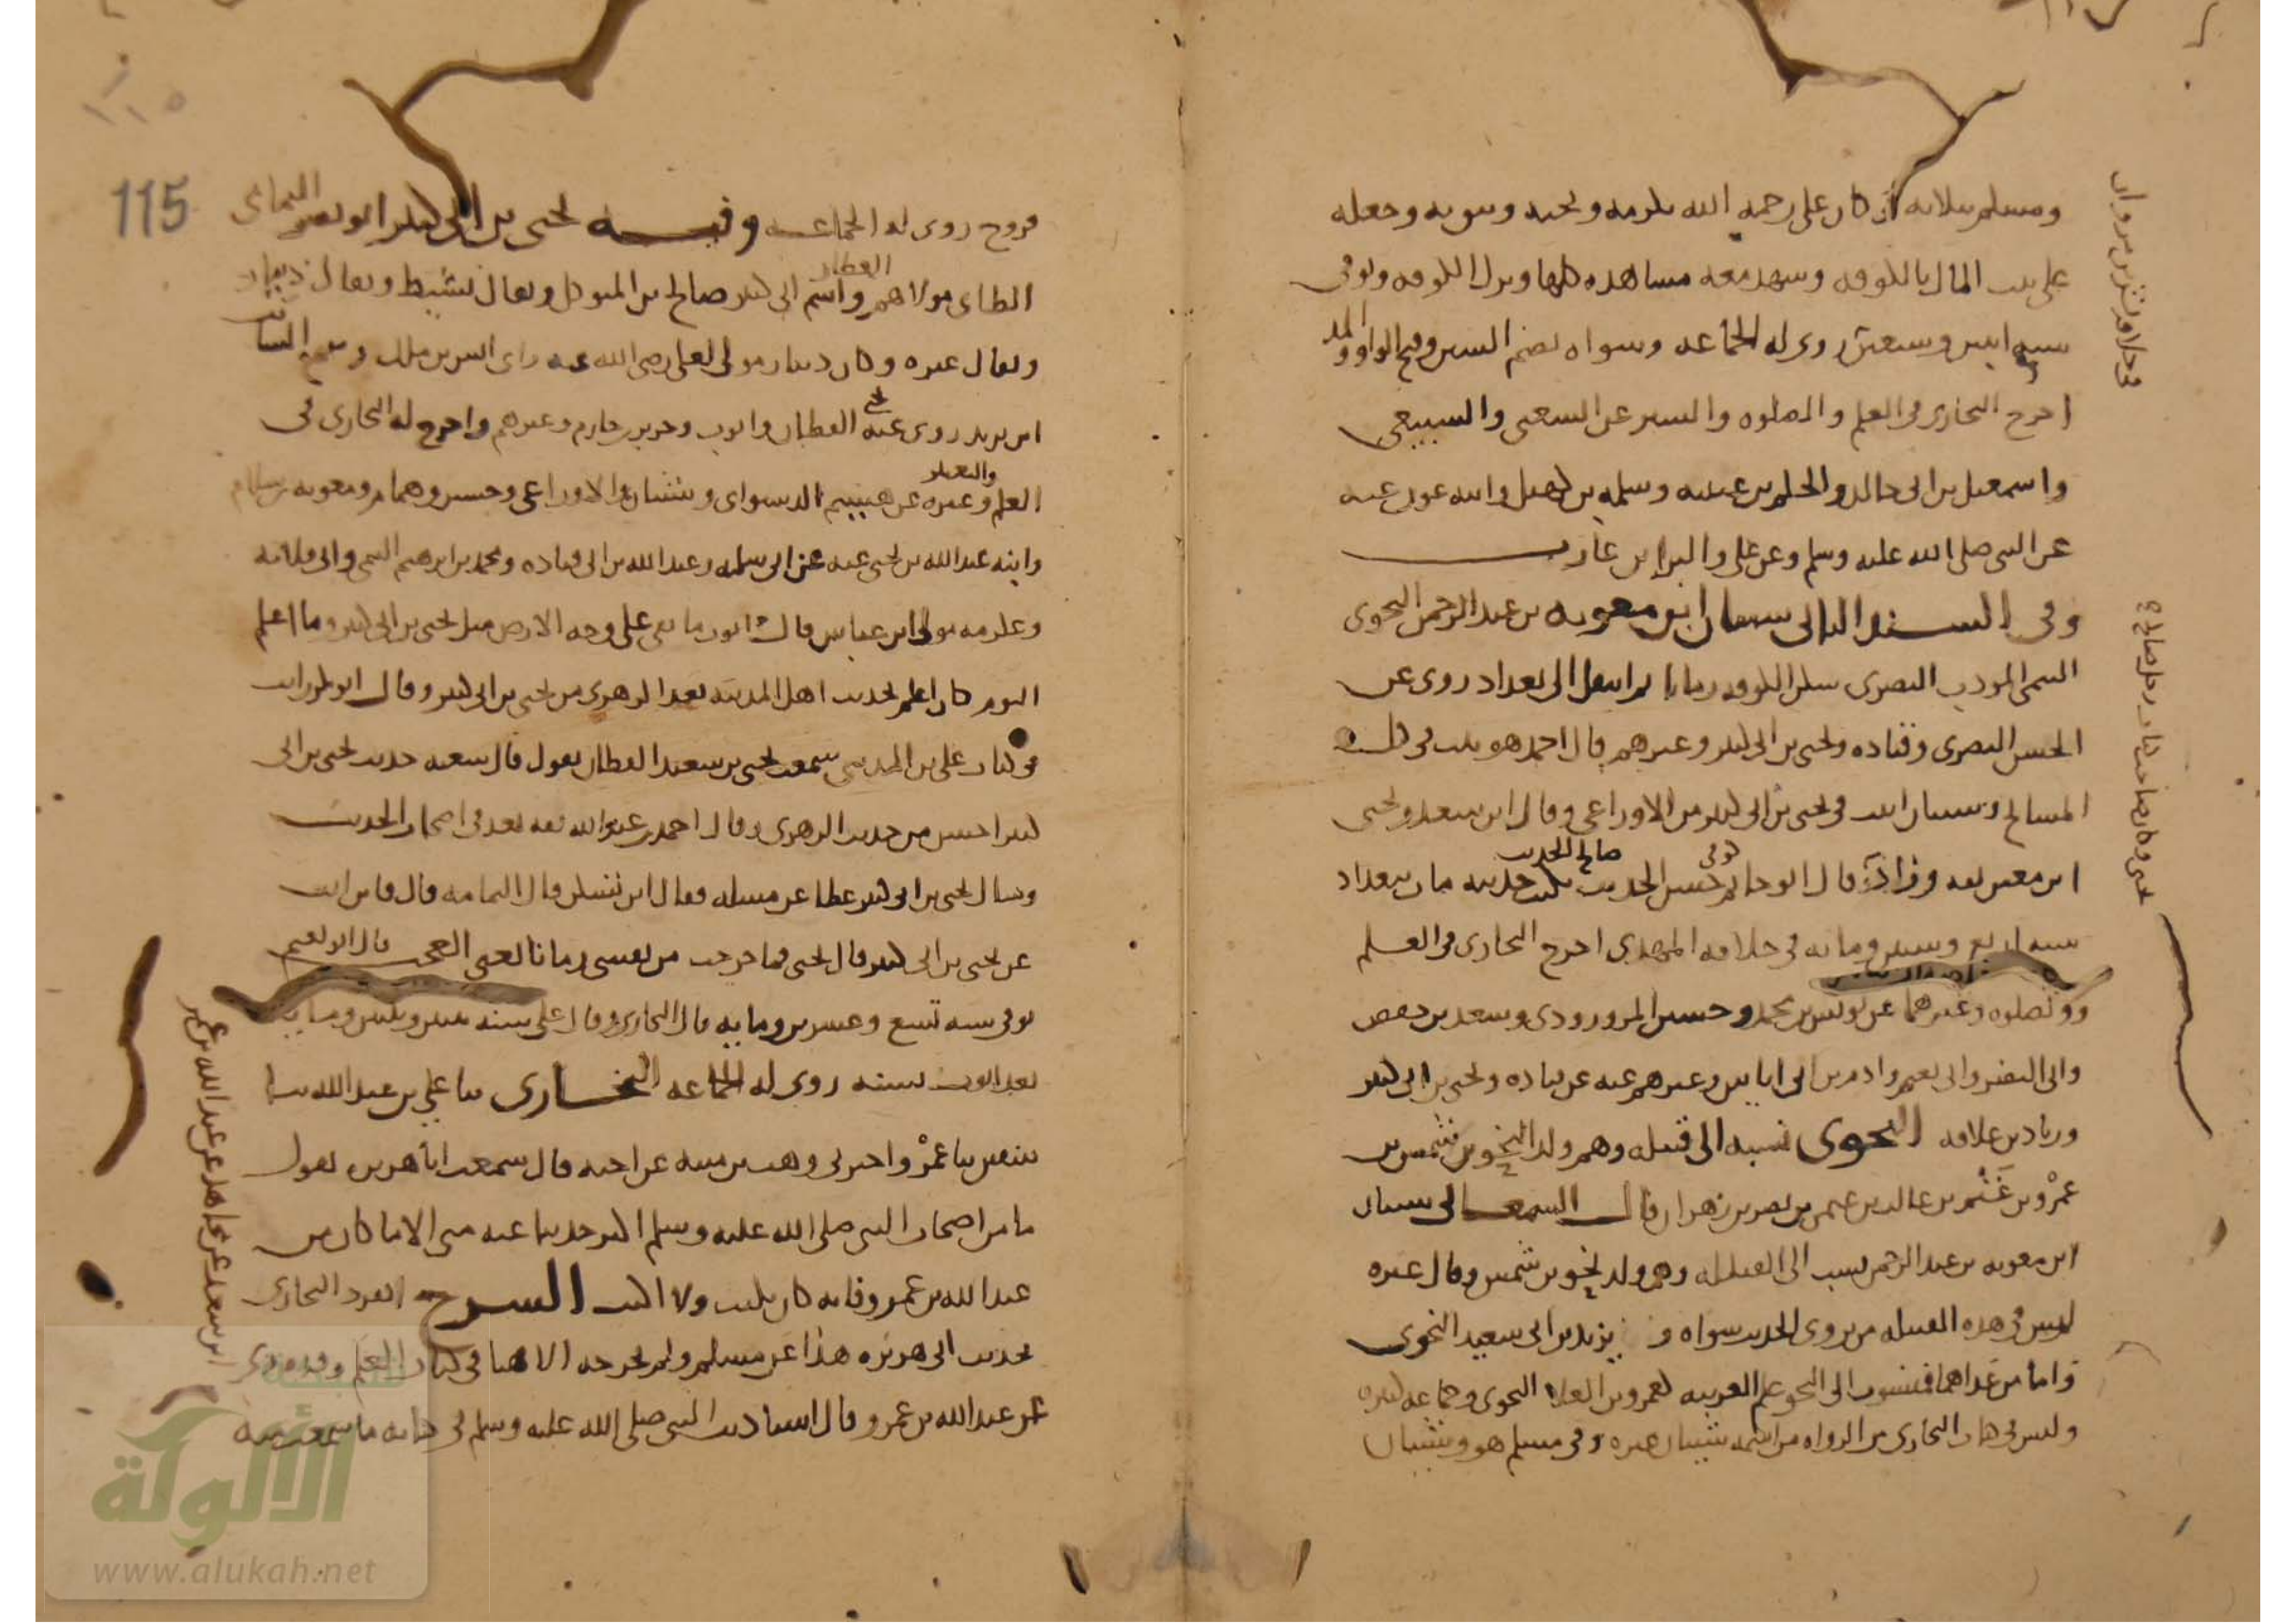 ومسلم ثلاثه كان علي رحمه الله يكرمه ويحبه ويثق به وجعله
على بيت المال بالكوفه وشهد معه مشاهده كلها ونزل الكوفه وتوفي
سنه اثنين وسبعين روى له الجماعه وسواه بضم السين وفتح الواو والمد
اخرج البخاري في العلم والصلوه والستر عن الشعبي والسبيعي
واسمعيل بن ابي خالد والحكم بن عتيبه وسلمه بن كهيل وابنه عون عنه
عن النبي صلى الله عليه وسلم وعن علي والبرا بن عازب
وفي السند الثاني شيبان ابو معويه بن عبد الرحمن النحوي
التميمي المودب البصري سكن الكوفه زمانا ثم انتقل الى بغداد روى عن
الحسن البصري وقتاده ويحيى بن ابي كثير وغيرهم قال احمد هو ثبت في كل
المشايخ وشيبان اثبت في يحيى بن ابي كثير من الاوزاعي وقال ابن سعد ويحيى
ابن معين ثقه قال ابو حاتم حسن الحديث صالح الحديث يكتب حديثه مات ببغداد
سنه اربع وستين ومايه في خلافه المهدي اخرج البخاري في العلم
والصلوه وغيرهما عن يونس بن محمد وحسين المروروذي وسعد بن حفص
وابي النضر وابي نعيم وادم بن ابي اياس وغيرهم عنه عن قتاده ويحيى بن ابي كثير
وزياد بن علاقه النحوي نسبه الى قبيله وهم ولد النحو بن شمس بن
عمرو بن غنم بن غالب بن عثمن بن نصر بن زهران قال السمعاني شيبان
ابن معويه بن عبد الرحمن نسب الى القبيله وهم ولد نحو بن شمس وقال غيره
ليس في هذه القبيله من يروي الحديث سواه و يزيد بن ابي سعيد النحوي
واما من عداهما فينسب الى النحو علم العربيه كعمرو بن العلا النحوي وجماعه كثيره
وليس في هذا البخاري من الرواه من اسمه شيبان غيره وفي مسلم هو وشيبان
في خلافه بشر بن مروان
يحيى وكان صاحب كتاب رجل صالح
115
فروخ روى له الجماعه وفيه يحيى بن ابي كثير ابو نصر اليمامي
الطائي مولاهم العطار واسم ابي كثير صالح بن المتوكل ويقال نشيط ويقال دينار
ويقال غيره وكان دينار مولى لعلي رضي الله عنه راى انس بن ملك وسمع السائب
ابن يزيد روى عنه يحيى القطان وايوب وجرير بن حازم وغيرهم واخرج له البخاري في
العلم وغيره عن هشيم والدستواي وشيبان والاوزاعي وحسين وهمام ومعويه بن سلام
وابنه عبد الله بن يحيى عنه عن ابي سلمه وعبد الله بن ابي قتاده ومحمد بن ابرهيم التيمي وابي قلابه
وعكرمه مولى ابن عباس قال ايوب ما بقي على وجه الارض مثل يحيى بن ابي كثير وما اعلم
اليوم كان اعلم بحديث اهل المدينه بعد الزهري من يحيى بن ابي كثير وقال ابو بكر رايت
في كتاب علي بن المديني سمعت يحيى بن سعيد القطان يقول قال شعبه حديث يحيى بن ابي
كثير احسن من حديث الزهري وقال احمد بن عبد الله ثقه يعد في اصحاب الحديث
وسال يحيى بن ابي كثير عطا عن مسله فقال اين تسكن قال اليمامه قال فاين انت
عن يحيى بن ابي كثير قال يحيى فما خرجت من نفسي زمانا يعني العجب قال ابو نعيم
توفي سنه تسع وعشرين ومايه قال البخاري وقال علي سنه ثنتين وثلثين ومايه
بعد ايوب بسنه روى له الجماعه البخاري ثنا علي بن عبد الله ثنا
سفين ثنا عمرو اخبرني وهب بن منبه عن اخيه قال سمعت ابا هريره يقول
ما من اصحاب النبي صلى الله عليه وسلم اكثر حديثا عنه مني الا ما كان من
عبد الله بن عمرو فانه كان يكتب ولا اكتب الشرح انفرد البخاري
بحديث ابي هريره هذا عن مسلم ولم يخرجه الا هنا في كتاب العلم وقد روي
عن عبد الله بن عمرو قال استاذنت النبي صلى الله عليه وسلم في كتابه ما سمعت منه
ابن سعد عن مجاهد عن عبد الله بن عمر
شبكة
الألوكة
www.alukah.net